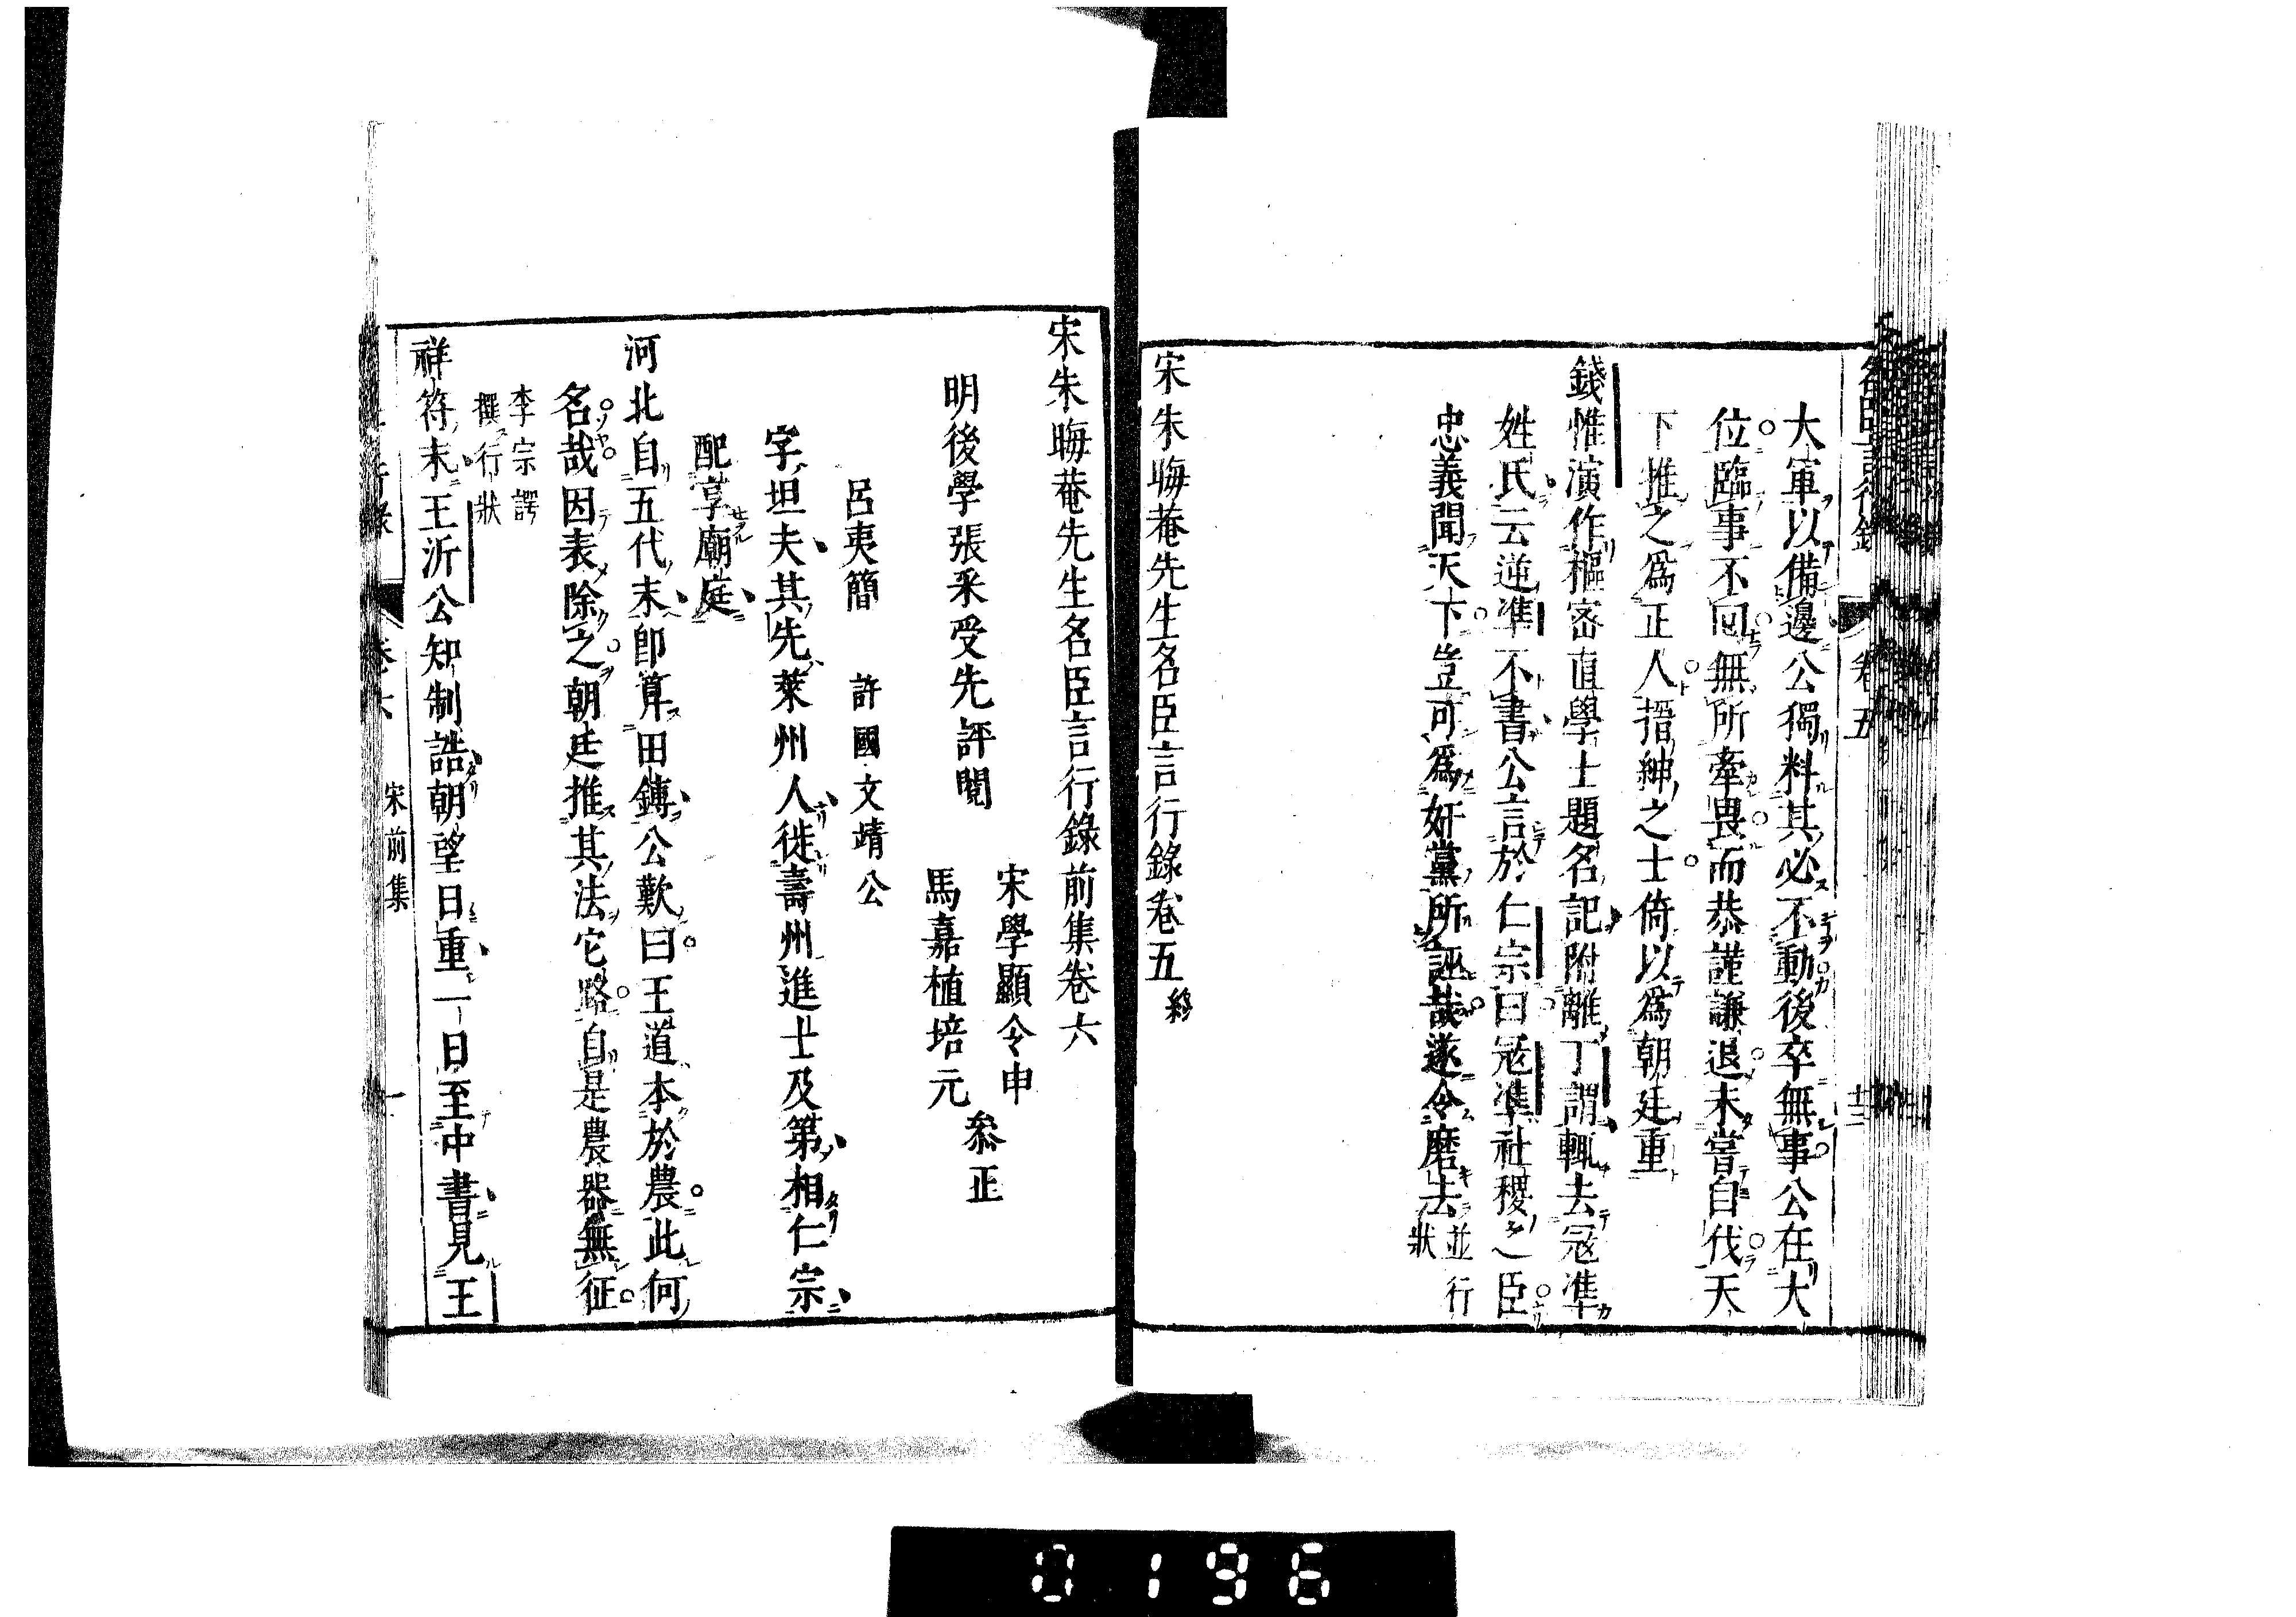 大軍以備邊公獨料其必不動後卒無事公在大
位臨事不回無所牽畏而恭謹謙退未嘗自伐天
下推之爲正人搢紳之士倚以爲朝廷重
錢惟演作樞密直學士題名記附離丁謂輒去寇準
姓氏云逆準不書公言於仁宗曰寇準社稷之臣
忠義聞天下豈可爲奸黨所誣哉遂令磨去並行狀
宋朱晦菴先生名臣言行錄卷五終
宋朱晦菴先生名臣言行錄前集卷六
宋學顯令申
明後學張采受先評閱
馬嘉植培元
叅正
呂夷簡　許國文靖公
字坦夫其先萊州人徙壽州進士及第相仁宗
配享廟庭
河北自五代末卽算田鎛公歎曰王道本於農此何
名哉因表除之朝廷推其法它路自是農器無征
李宗諤撰行狀
祥符末王沂公知制誥朝望日重一日至中書見王
卷六　宋前集　一
0196